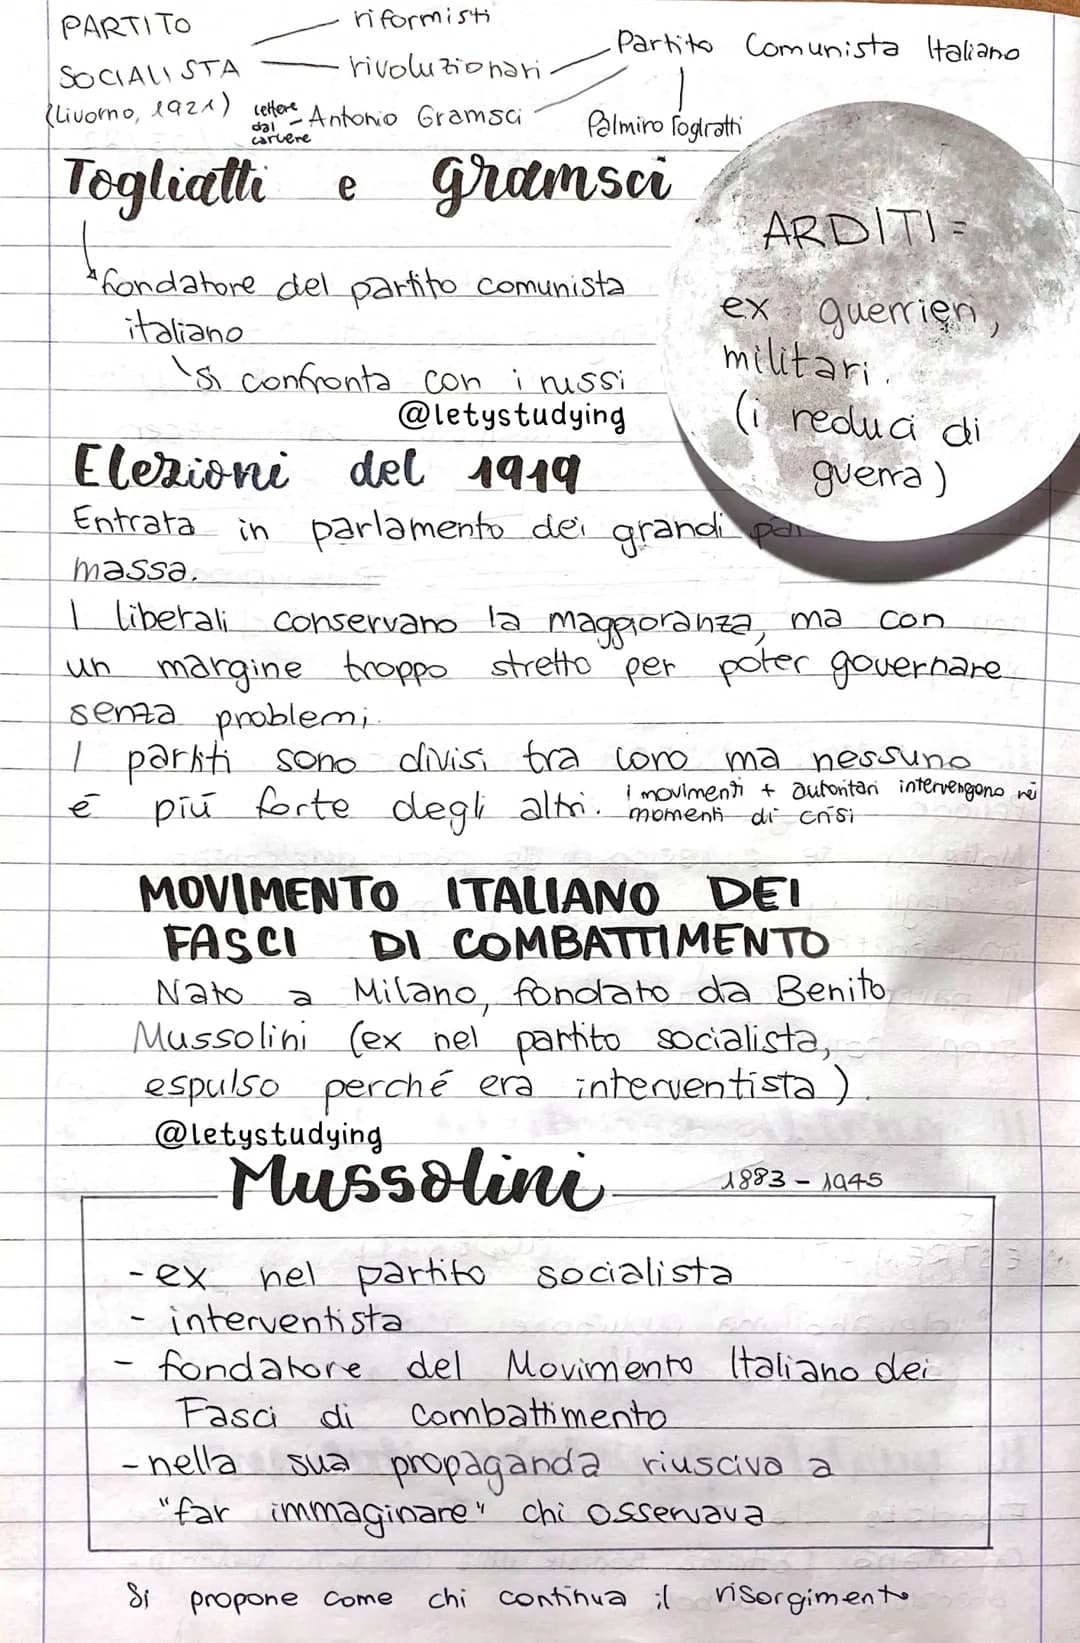 PARTITO
SOCIALISTA
(Livorno, 1921)
riformisti
rivoluzionari
lettere
dal
carcere
- Antonio Gramsci
Partito Comunista Italiano
Palmiro Togliatti
Togliatti e Gramsci
fondatore del partito comunista
italiano
si confronta con i russi
@letystudying
ARDITI =
ex guerrieri,
militari.
(i reduci di
guerra)
Elezioni del 1919
Entrata in parlamento dei grandi
massa.
I liberali conservano la maggioranza, ma con
un margine troppo stretto per poter governare
senza problemi.
I partiti sono divisi tra loro ma nessuno
é piú forte degli altri.
i movimenti + autoritari intervengono nei
momenti di crisi
MOVIMENTO ITALIANO DEI
FASCI DI COMBATTIMENTO
Nato a Milano, fondato da Benito
Mussolini (ex nel partito socialista,
espulso perché era interventista).
@letystudying
Mussolini 1883 - 1945
- ex nel partito socialista
- interventista
- fondatore del Movimento Italiano dei
Fasci di Combattimento
- nella sua propaganda riusciva a
"far immaginare" chi osservava
Si propone come chi continua il risorgimento